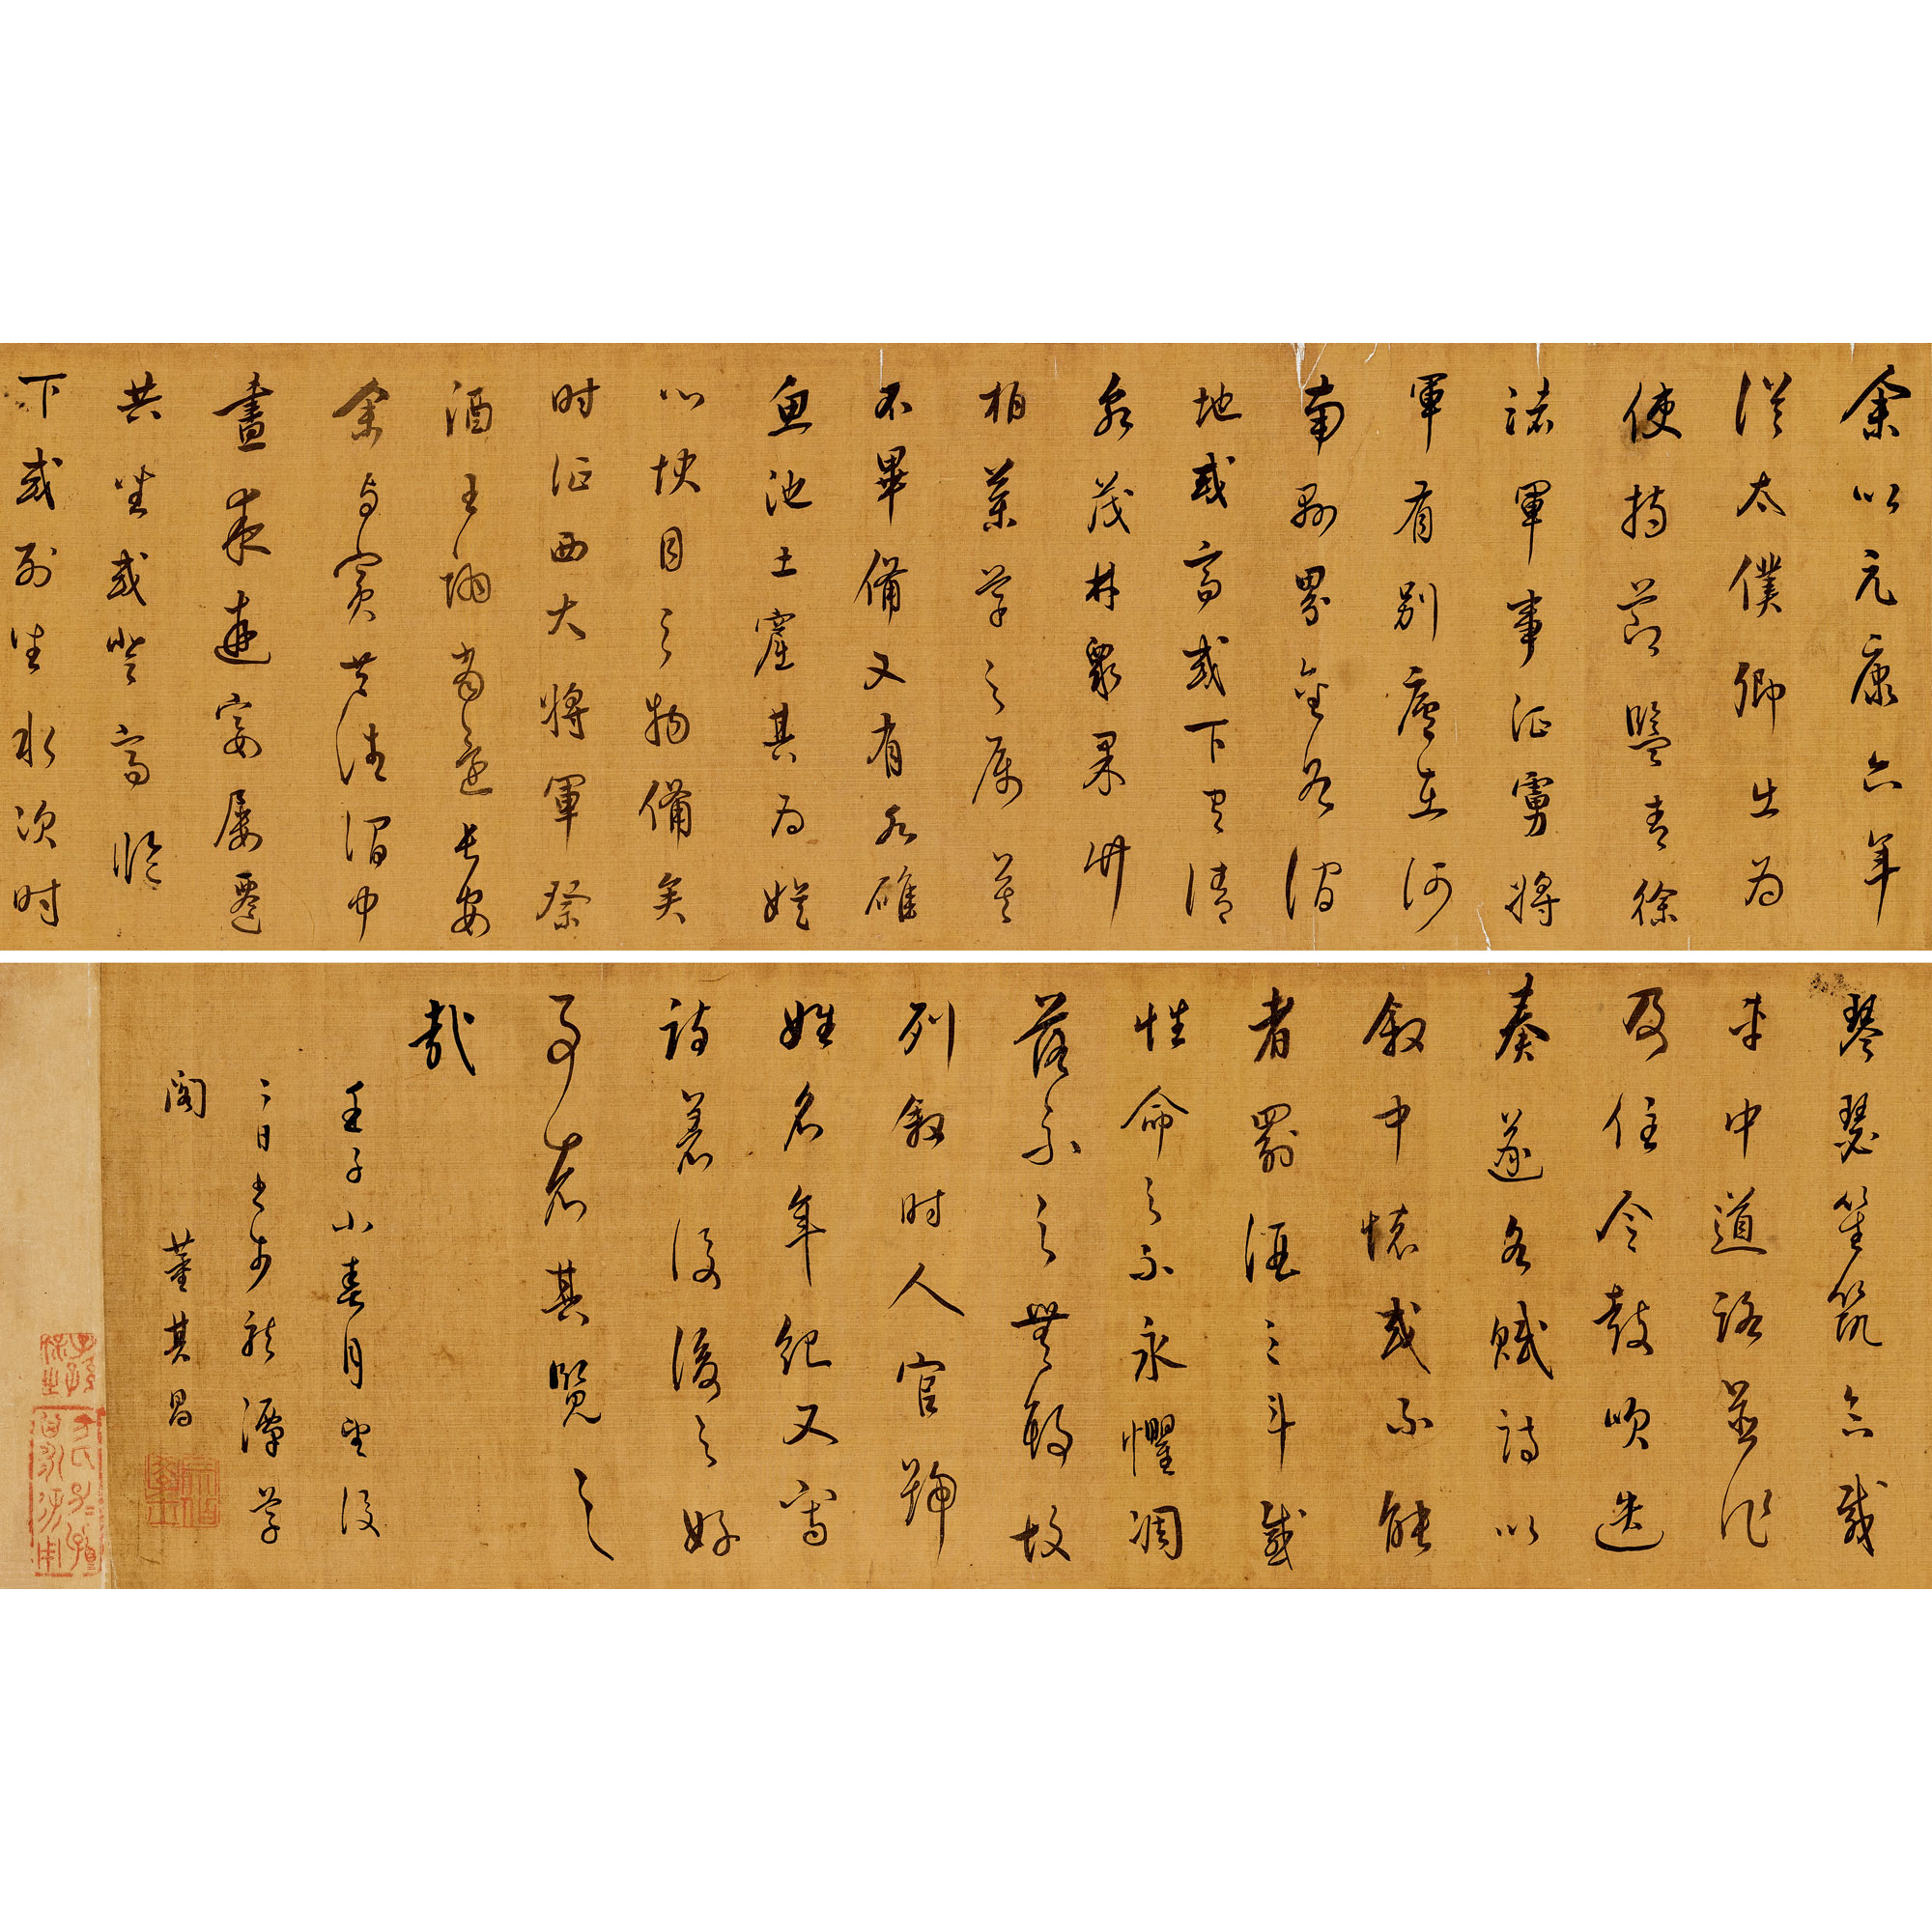 余以元康六年
從太僕卿出為
使持節監青徐
諸軍事征虜將
軍有別廬在河
南縣界金谷澗
地或高或下有清
泉茂林眾果竹
柏藥草之屬莫
不畢備又有水碓
魚池土窟其為娛
心快目之物備矣
时征西大將軍祭
酒王詡當還長安
余与共往澗中
晝夜遊宴屢遷
共坐或登高臨
下或列坐水次时
琴瑟笙筑合載
車中道路並作
及住令鼓吹迭
奏遂各賦詩以
敘中懷或不能
者罰酒三斗感
性命之不永懼凋
落之無期故
列敘时人官號
姓名年紀又寫
詩著後後之好
事者其覽之
哉
壬子小春月望後
二日書於龍潭學
閣 董其昌
子孫保之